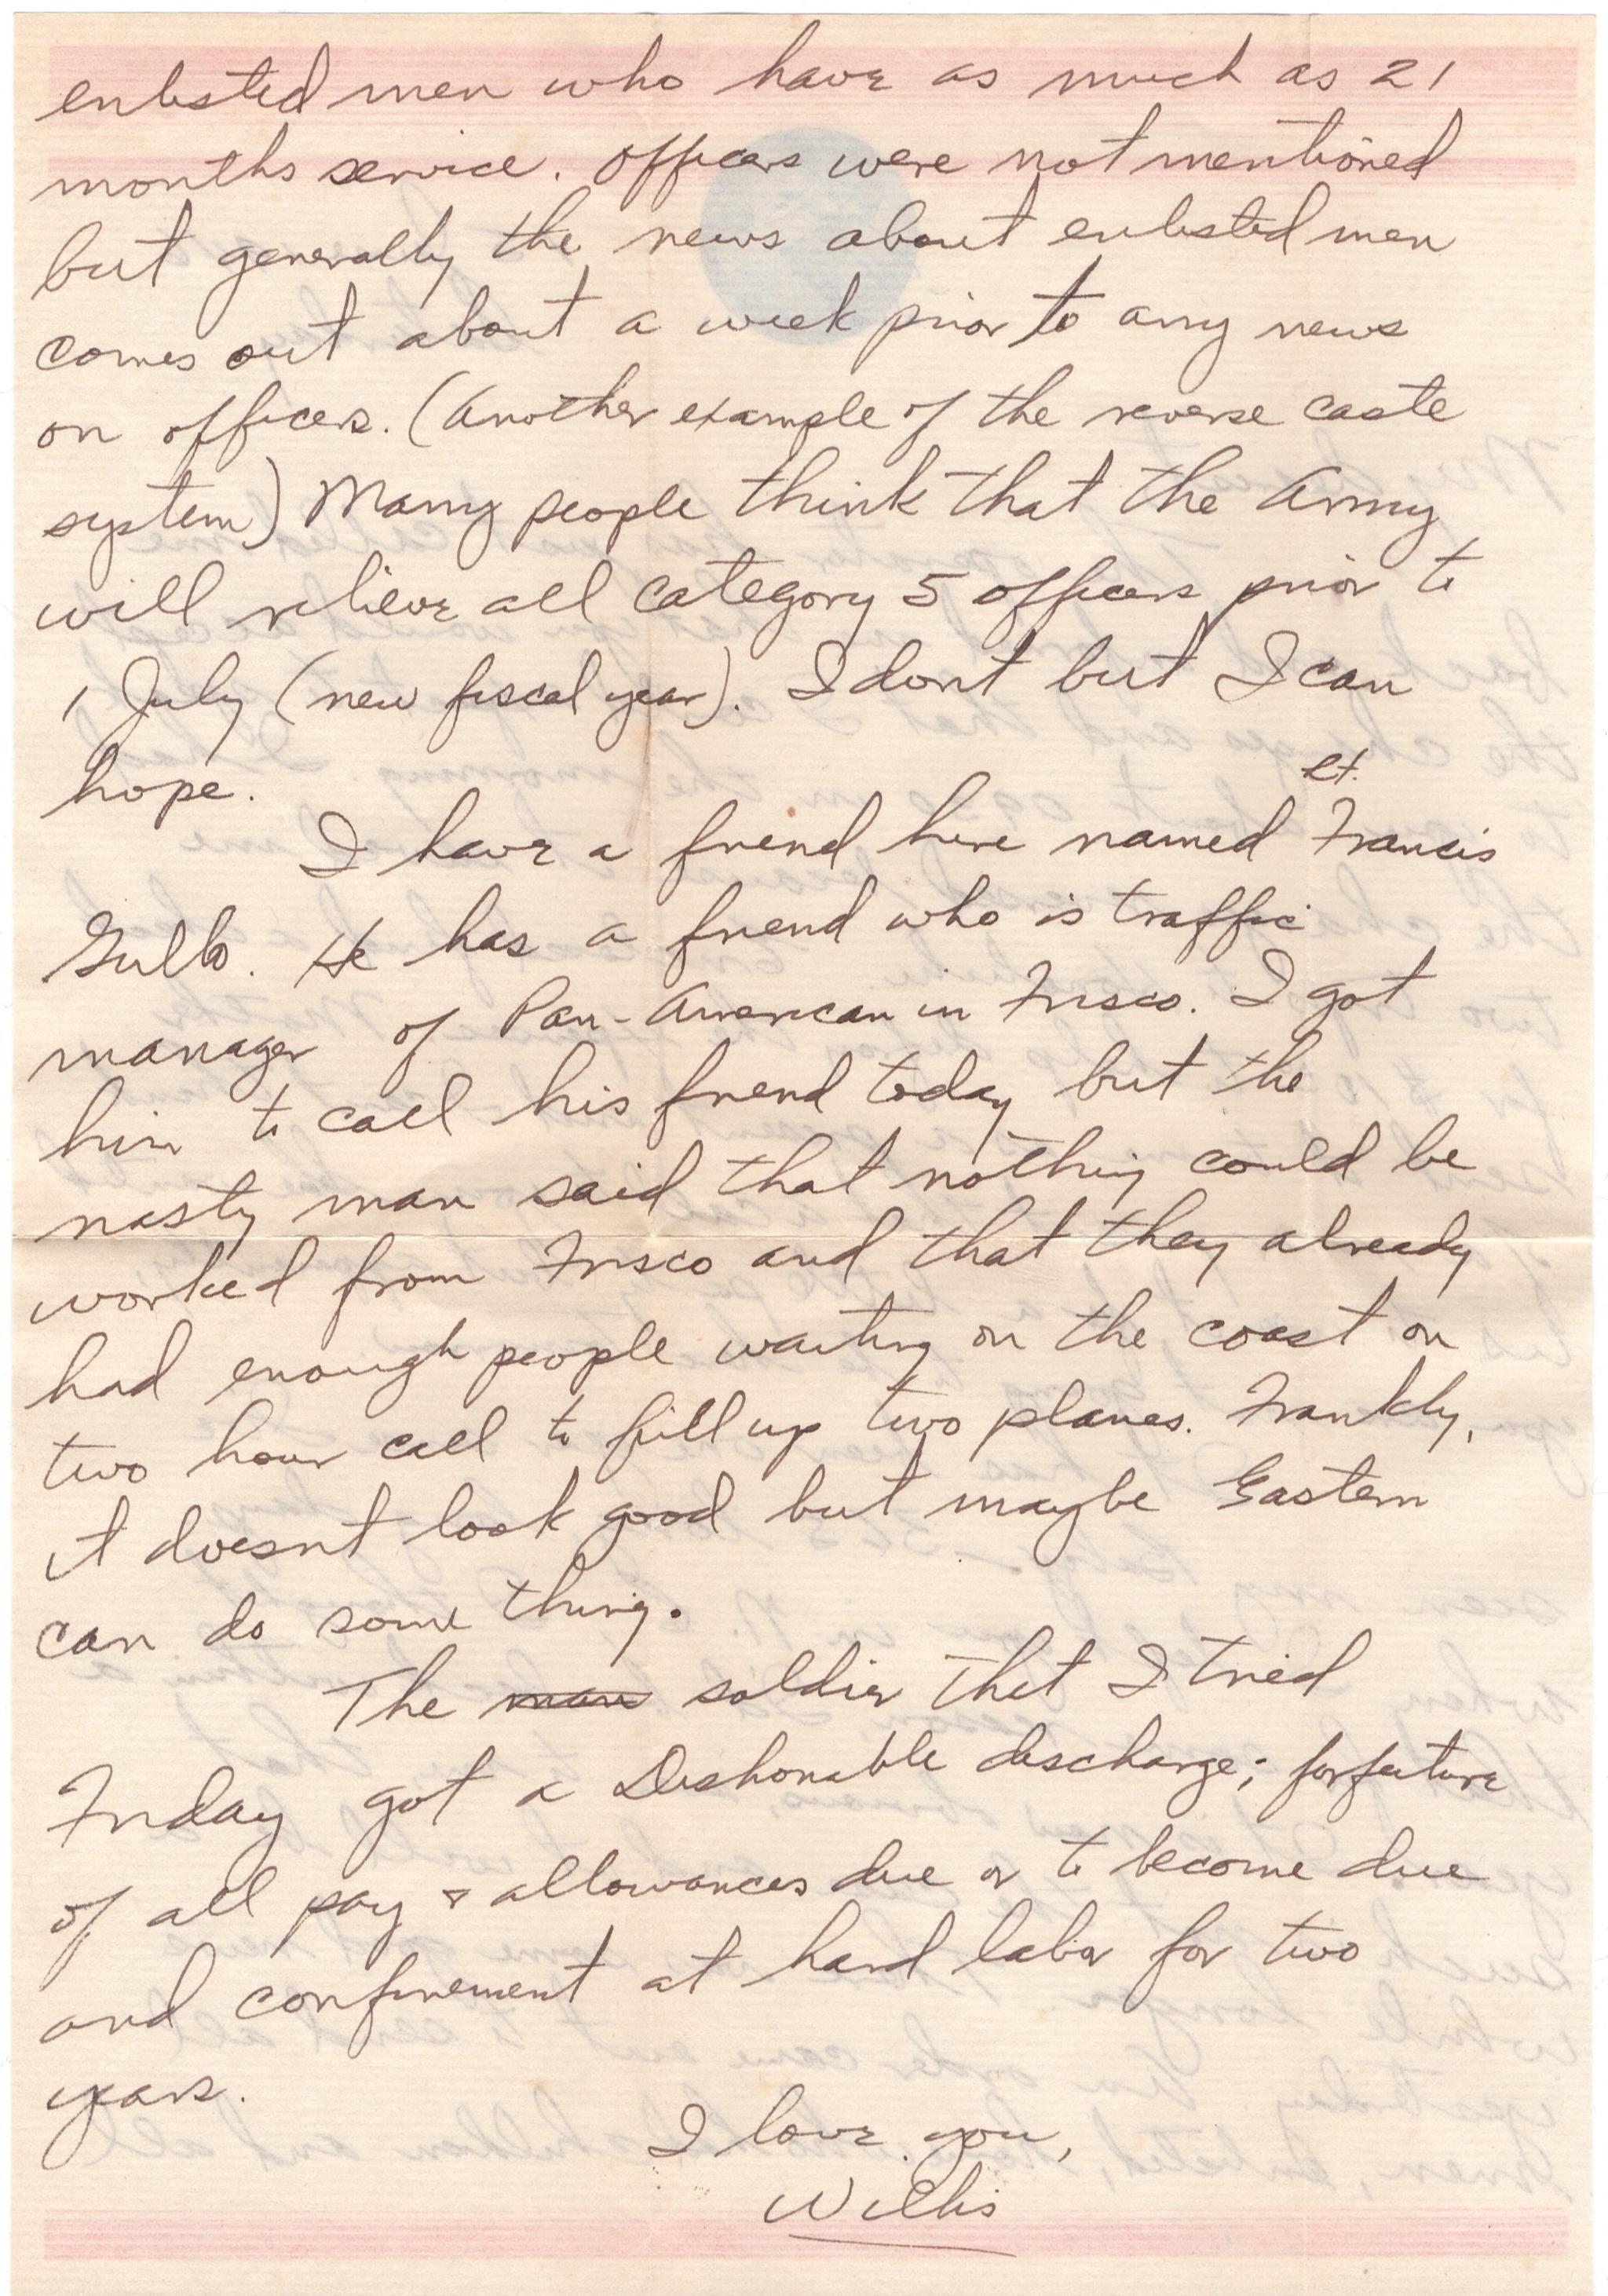 enlisted men who have as much as 21
months service. Officers were not mentioned
but generally the news about enlisted men
comes out about a week prior to any news
on officers. (Another example of the reverse caste
system) Many people think that the Army
will relieve all category 5 officers prior to
1 July (new fiscal year). I dont but I can
hope.
I have a friend here named Lt. Francis
Gullo. He has a friend who is traffic
manager of Pan-American in Frisco. I got
him to call his friend today but the
nasty man said that nothing could be
worked from Frisco and that they already
had enough people waiting on the coast on
two hour call to fill up two planes. Frankly,
it doesnt look good but maybe Eastern
can do some thing.
The man soldier that I tried
Friday got a Dishonable discharge; forfeiture
of all pay & allowances due or to become due
and confinement at hard labor for two
years.
I love you,
Willis